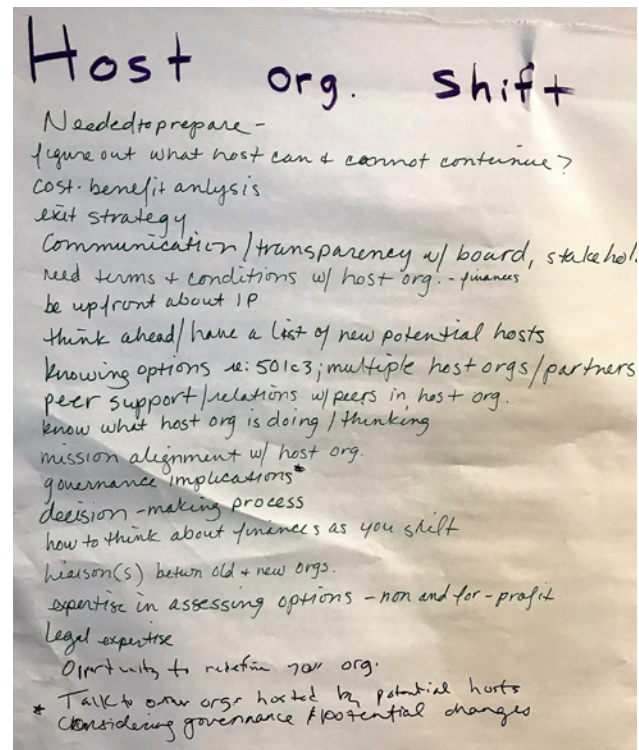 Host org. Shift
Needed to prepare -
figure out what host can & cannot continue?
cost-benefit anlysis
exit strategy
Communication/transparency w/ board, stakehol
need terms & conditions w/ host org. - finances
be upfront about IP
think ahead/have a list of new potential hosts
knowing options re: 501c3; multiple host orgs/partners
peer support/relations w/peers in host org.
know what host org is doing/thinking
mission alignment w/ host org.
governance implications*
decision-making process
how to think about finances as you shift
liaison(s) betwn old & new orgs.
expertise in assessing options - non and for-profit
Legal expertise
Opportunity to redefine your org.
* Talk to other orgs hosted by potential hosts
considering governance & potential changes